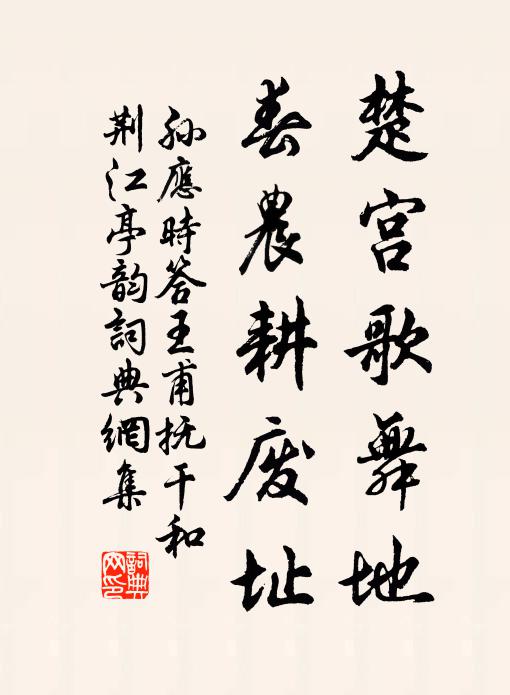 楚宫歌舞地
春農耕废址
孙應時答王甫抚干和
荆江亭韵詞典網集
詞典
网印